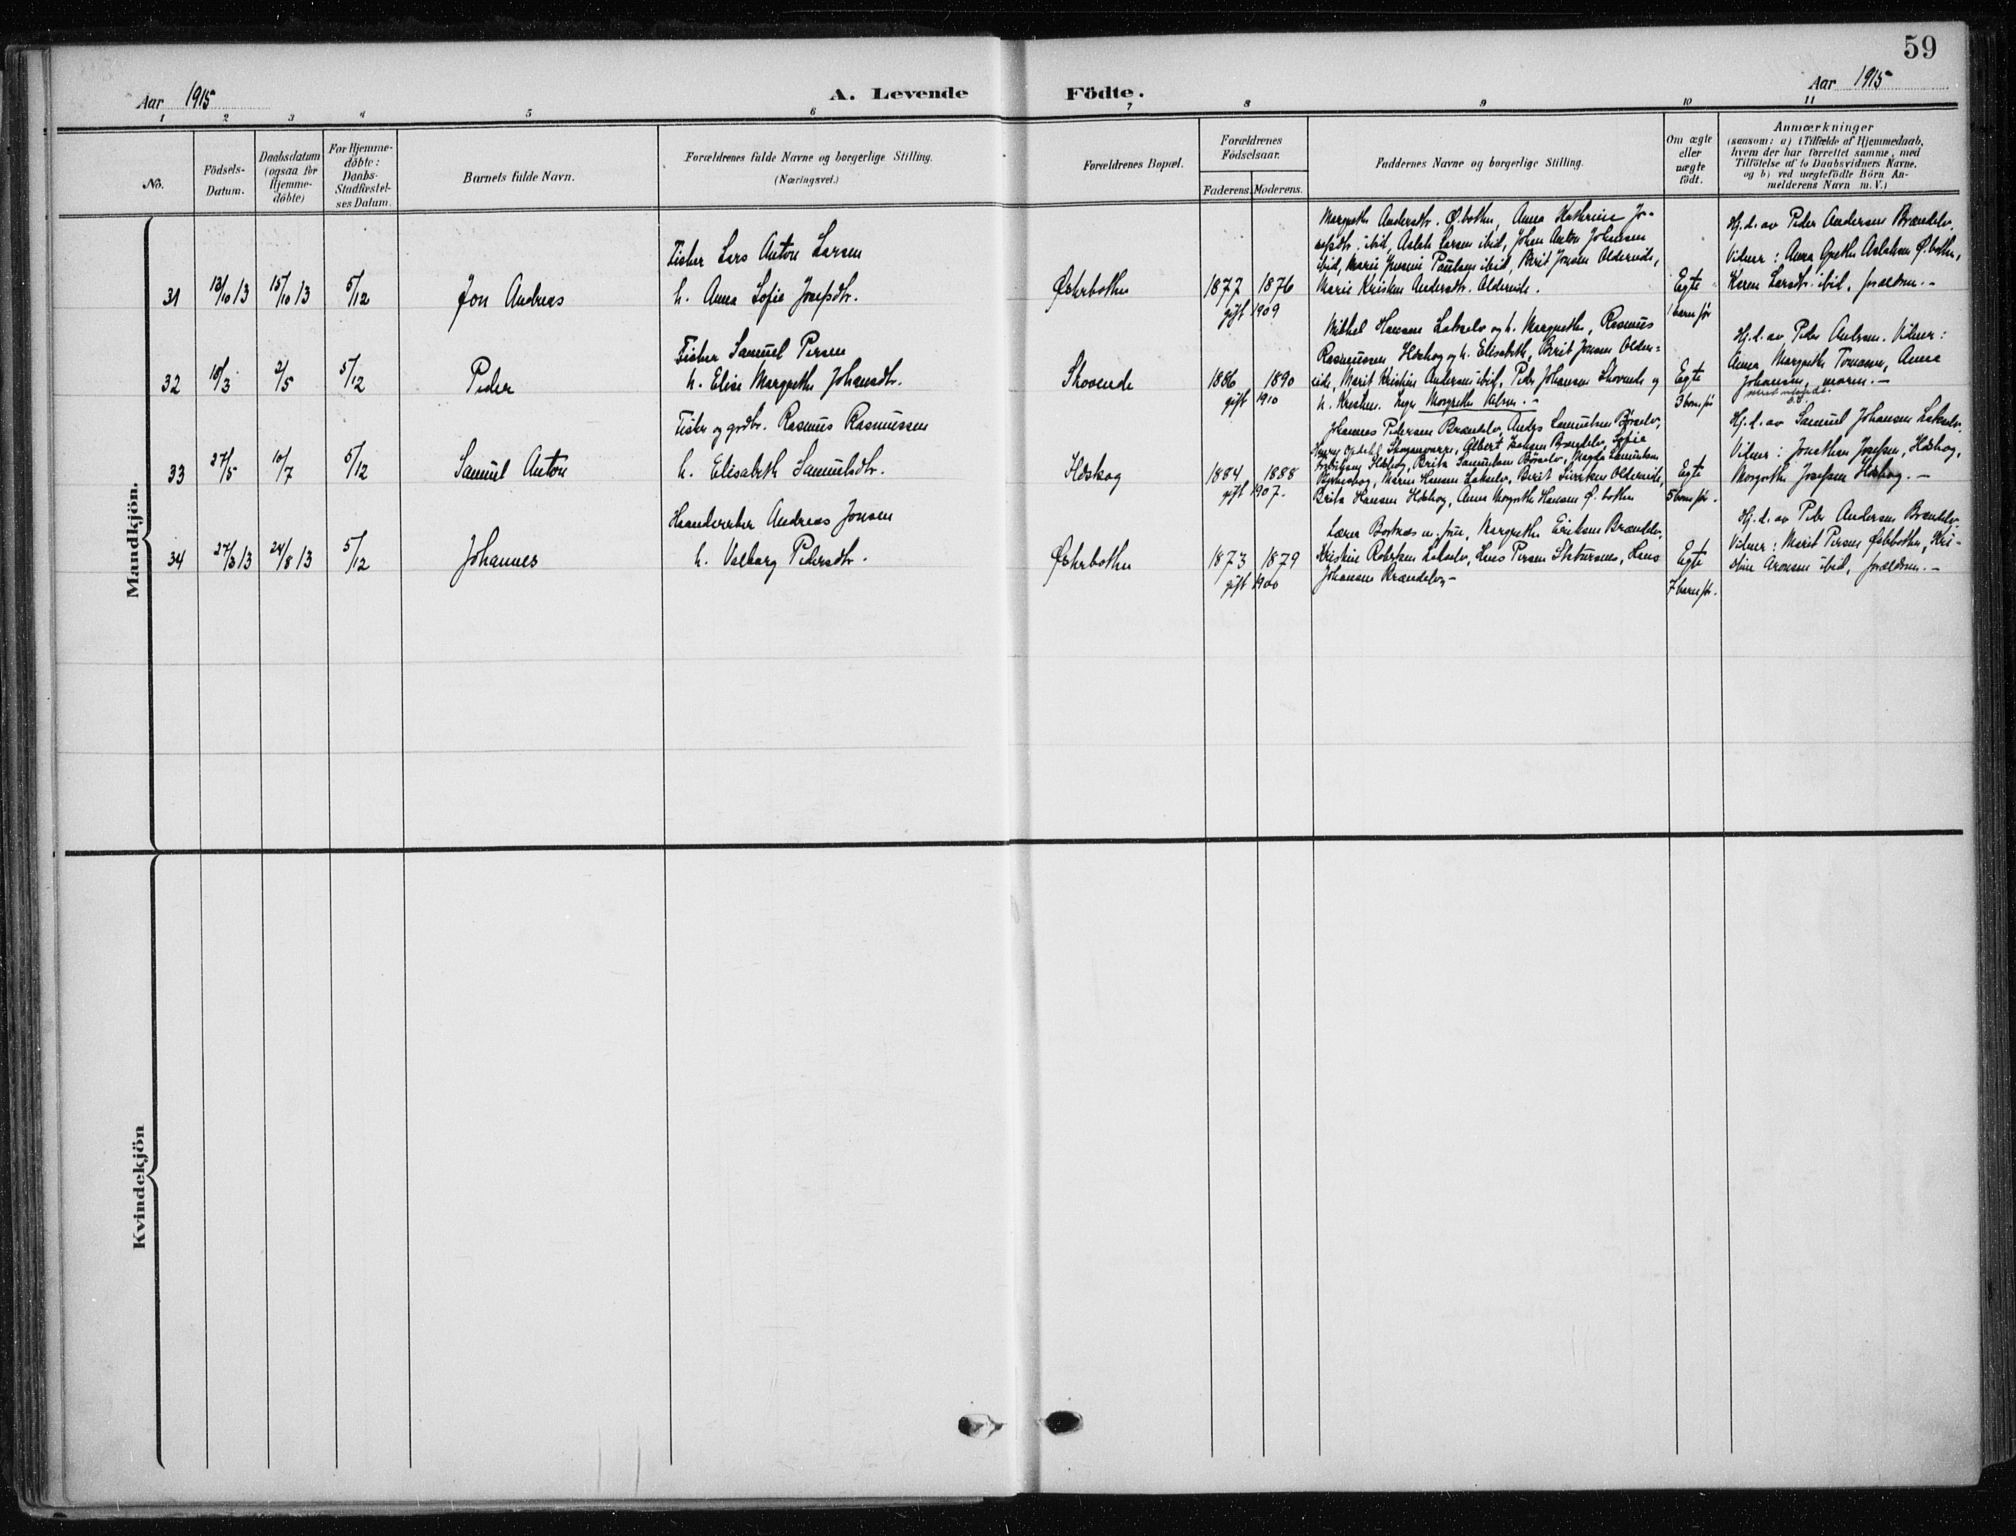 59
Aar 1915
A. Levende Födte.
Aar 1915
1 2 3 4 5 6 7 8 9 10 11
No.
Födsels-
Datum.
Daabsdatum
(ogsaa for
Hjemme-
döbte)
For Hjemme-
döbte:
Daabs-
Stadfæstel-
ses Datum.
Barnets fulde Navn.
Forældrenes fulde Navne og borgerlige Stilling.
(Næringsvei.)
Forældrenes Bopæl.
Forældrenes
Födselsaar.
Faderens. Moderens.
Faddernes Navne og borgerlige Stilling.
Om ægte
eller
uægte
födt.
Anmærkninger
(saasom: a) i Tilfælde af Hjemmedaab,
hvem der har forrettet samme, med
Tilföielse af to Daabsvidners Navne,
og b) ved uægtefödte Börn An-
melderens Navn m. V.)
Mandkjön.
31
13/10 13
15/10 13
5/12
Jon Andreas
Fisker Lars Anton Larsen
h. Anna Sofie Josefsdtr.
Østerbotten
1877 1876
gift 1909
Margrethe Andersdtr. Ø.botten, Anna Kathrine Jo-
sefsdtr. ibid, Aslak Larsen ibid, Johan Anton Johansen
ibid, Marie Paulsen ibid, Berit Jonsen Oldereide,
Marie Kristine Andersdtr. Oldereide.
Egte
1 barn før
Hj.d. av Peder Andersen Brændelv.
Vidner: Anna Aslaksen Ø.botten,
Karen Larsdtr. ibid, forældrene.-
32
10/3
2/5
5/12
Peder
Fisker Samuel Persen
h. Elise Margrethe Johansdtr.
Skovende
1886 1890
gift 1910
Mikkel Hansen Lakselv og h. Margrethe, Rasmus
Rasmussen Hdskog og h. Elisabeth, Berit Jonsen Older-
eide, Marit Kristine Andersen ibid, Peder Johansen Skovende og
h. Kristine.
Egte
3 barn før
Hj.d. av Peder Andersen. Vidner:
Anna Margrethe Tomasen, Anna
Johansen, moren.-
33
27/5
10/7
5/12
Samuel Anton
Fisker og grdbr. Rasmus Rasmussen
h. Elisabeth Samuelsdtr.
Hdskog
1884 1888
gift 1907.
Johannes Pedersen Brændelv, Anders Samuelsen Børselv,
Skoganvarre, Albert Isaksen Brændelv, Sofie
Hdskog, Brita Samuelsen Børselv, Magda Samuelsen
Maren Hansen Lakselv, Berit Sivertsen Oldereide,
Brita Hansen Hdskog, Anna Margrethe Hansen Ø.botten
Egte
5 barn før.
Hj.d. av Samuel Johansen Lakselv.
Vidner: Jonathan Josefsen, Hdskog,
Margrethe Josefsen Hdskog.-
34
27/3 13
24/8 13
5/12
Johannes
Haandverker Andreas Jonsen
h. Valborg Pedersdtr.
Østerbotten
1873 1879
gift 1900
Lærer Bertnæs m. frue, Margrethe Eriksen Brændelv,
Kristine Lakselv, Lars Persen Lars
Johansen Brændelv-
Egte
7 barn før.
Hj.d. av Peder Andersen Brændelv.
Vidner: Marit Persen Østbotten, Kri-
stine Aronsen ibid, forældrene.-
Kvindekjön